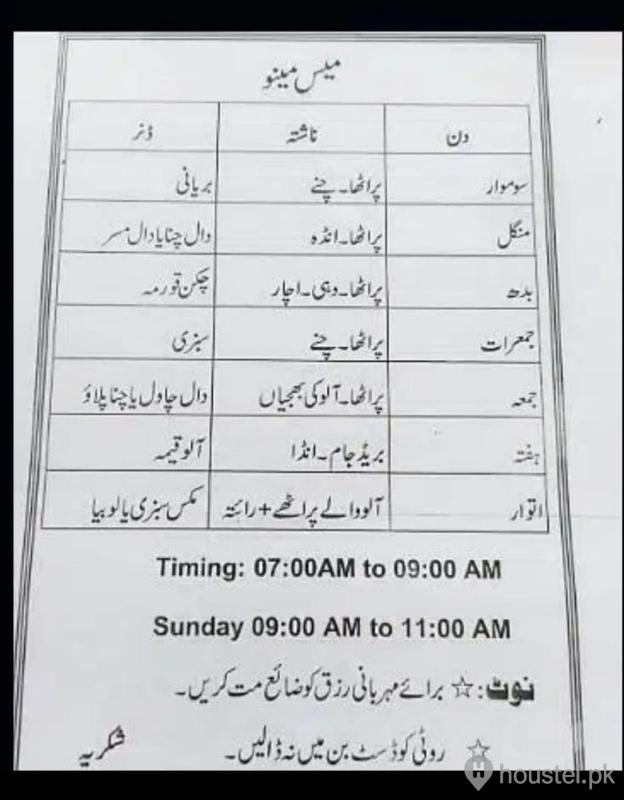 میس مینو
دن ناشتہ ڈنر
سوموار پراٹھا۔چنے بریانی
منگل پراٹھا۔انڈہ دال چنا یا دال مسر
بدھ پراٹھا۔دہی۔اچار چکن قورمہ
جمعرات پراٹھا۔چنے سبزی
جمعہ پراٹھا۔آلو کی بھجیاں دال چاول یا چنا پلاؤ
ہفتہ بریڈ جام۔انڈا آلو قیمہ
اتوار آلو والے پراٹھے+رائتہ مکس سبزی یا لوبیا
Timing: 07:00AM to 09:00 AM
Sunday 09:00 AM to 11:00 AM
نوٹ: ☆ برائے مہربانی رزق کو ضائع مت کریں۔
☆ روٹی کو ڈسٹ بن میں نہ ڈالیں۔ شکریہ
houstel.pk